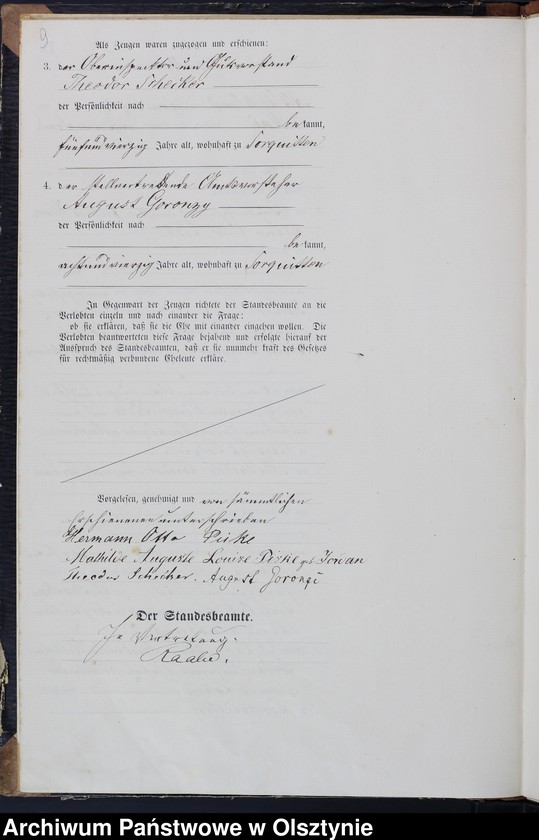 9
Als Zeugen waren zugezogen und erschienen:
3. der Oberinspektor und Gutsvorstand
Theodor Schecker
der Persönlichkeit nach
be kannt,
fünfundvierzig Jahre alt, wohnhaft zu Sorquitten
4. der stellvertretende Amtsvorsteher
August Goronzy
der Persönlichkeit nach
be kannt,
achtundvierzig Jahre alt, wohnhaft zu Sorquitten
In Gegenwart der Zeugen richtete der Standesbeamte an die
Verlobten einzeln und nach einander die Frage:
ob sie erklären, daß sie die Ehe mit einander eingehen wollen. Die
Verlobten beantworteten diese Frage bejahend und erfolgte hierauf der
Ausspruch des Standesbeamten, daß er sie nunmehr kraft des Gesetzes
für rechtmäßig verbundene Eheleute erkläre.
Vorgelesen, genehmigt und von sämmtlichen
Erschienenen unterschrieben
Hermann Otto
Mathilde Auguste Louise geb Jordan
Theodor Schecker. August
Der Standesbeamte.
In Vertretung.